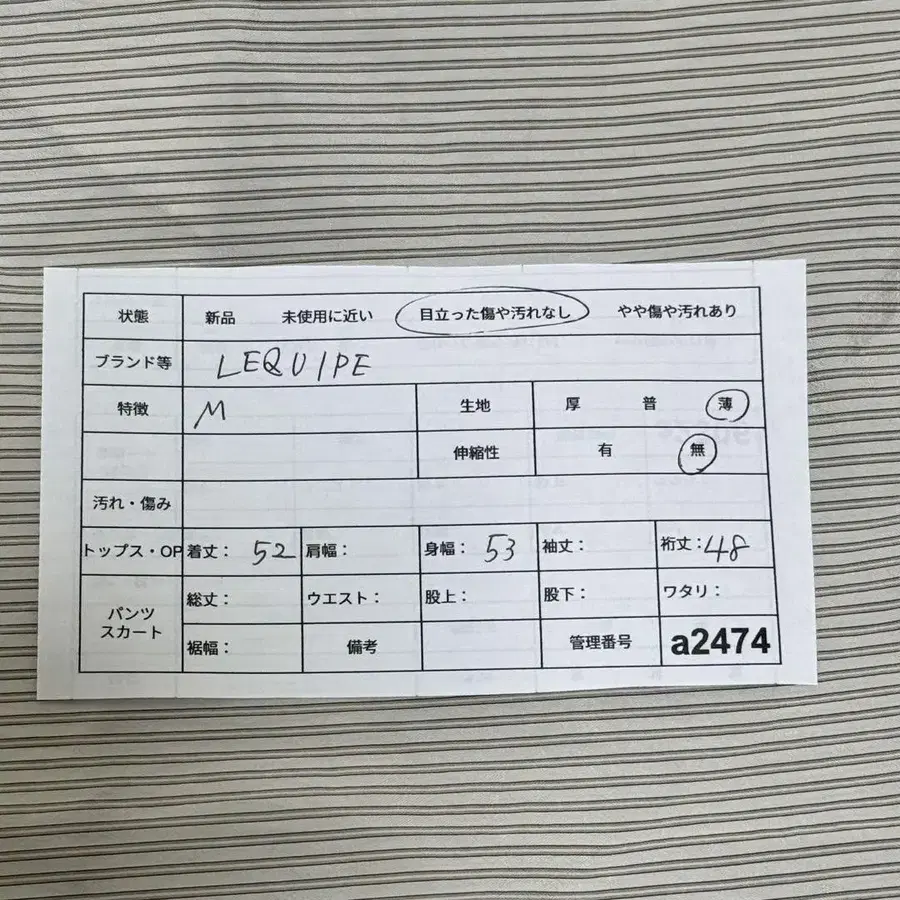 状態 新品 未使用に近い 目立った傷や汚れなし やや傷や汚れあり
ブランド等 LEQUIPE
特徴 M 生地 厚 普 薄
伸縮性 有 無
汚れ・傷み
トップス・OP 着丈: 52 肩幅: 身幅: 53 袖丈: 裄丈: 48
パンツ
スカート
総丈: ウエスト: 股上: 股下: ワタリ:
裾幅: 備考 管理番号 a2474